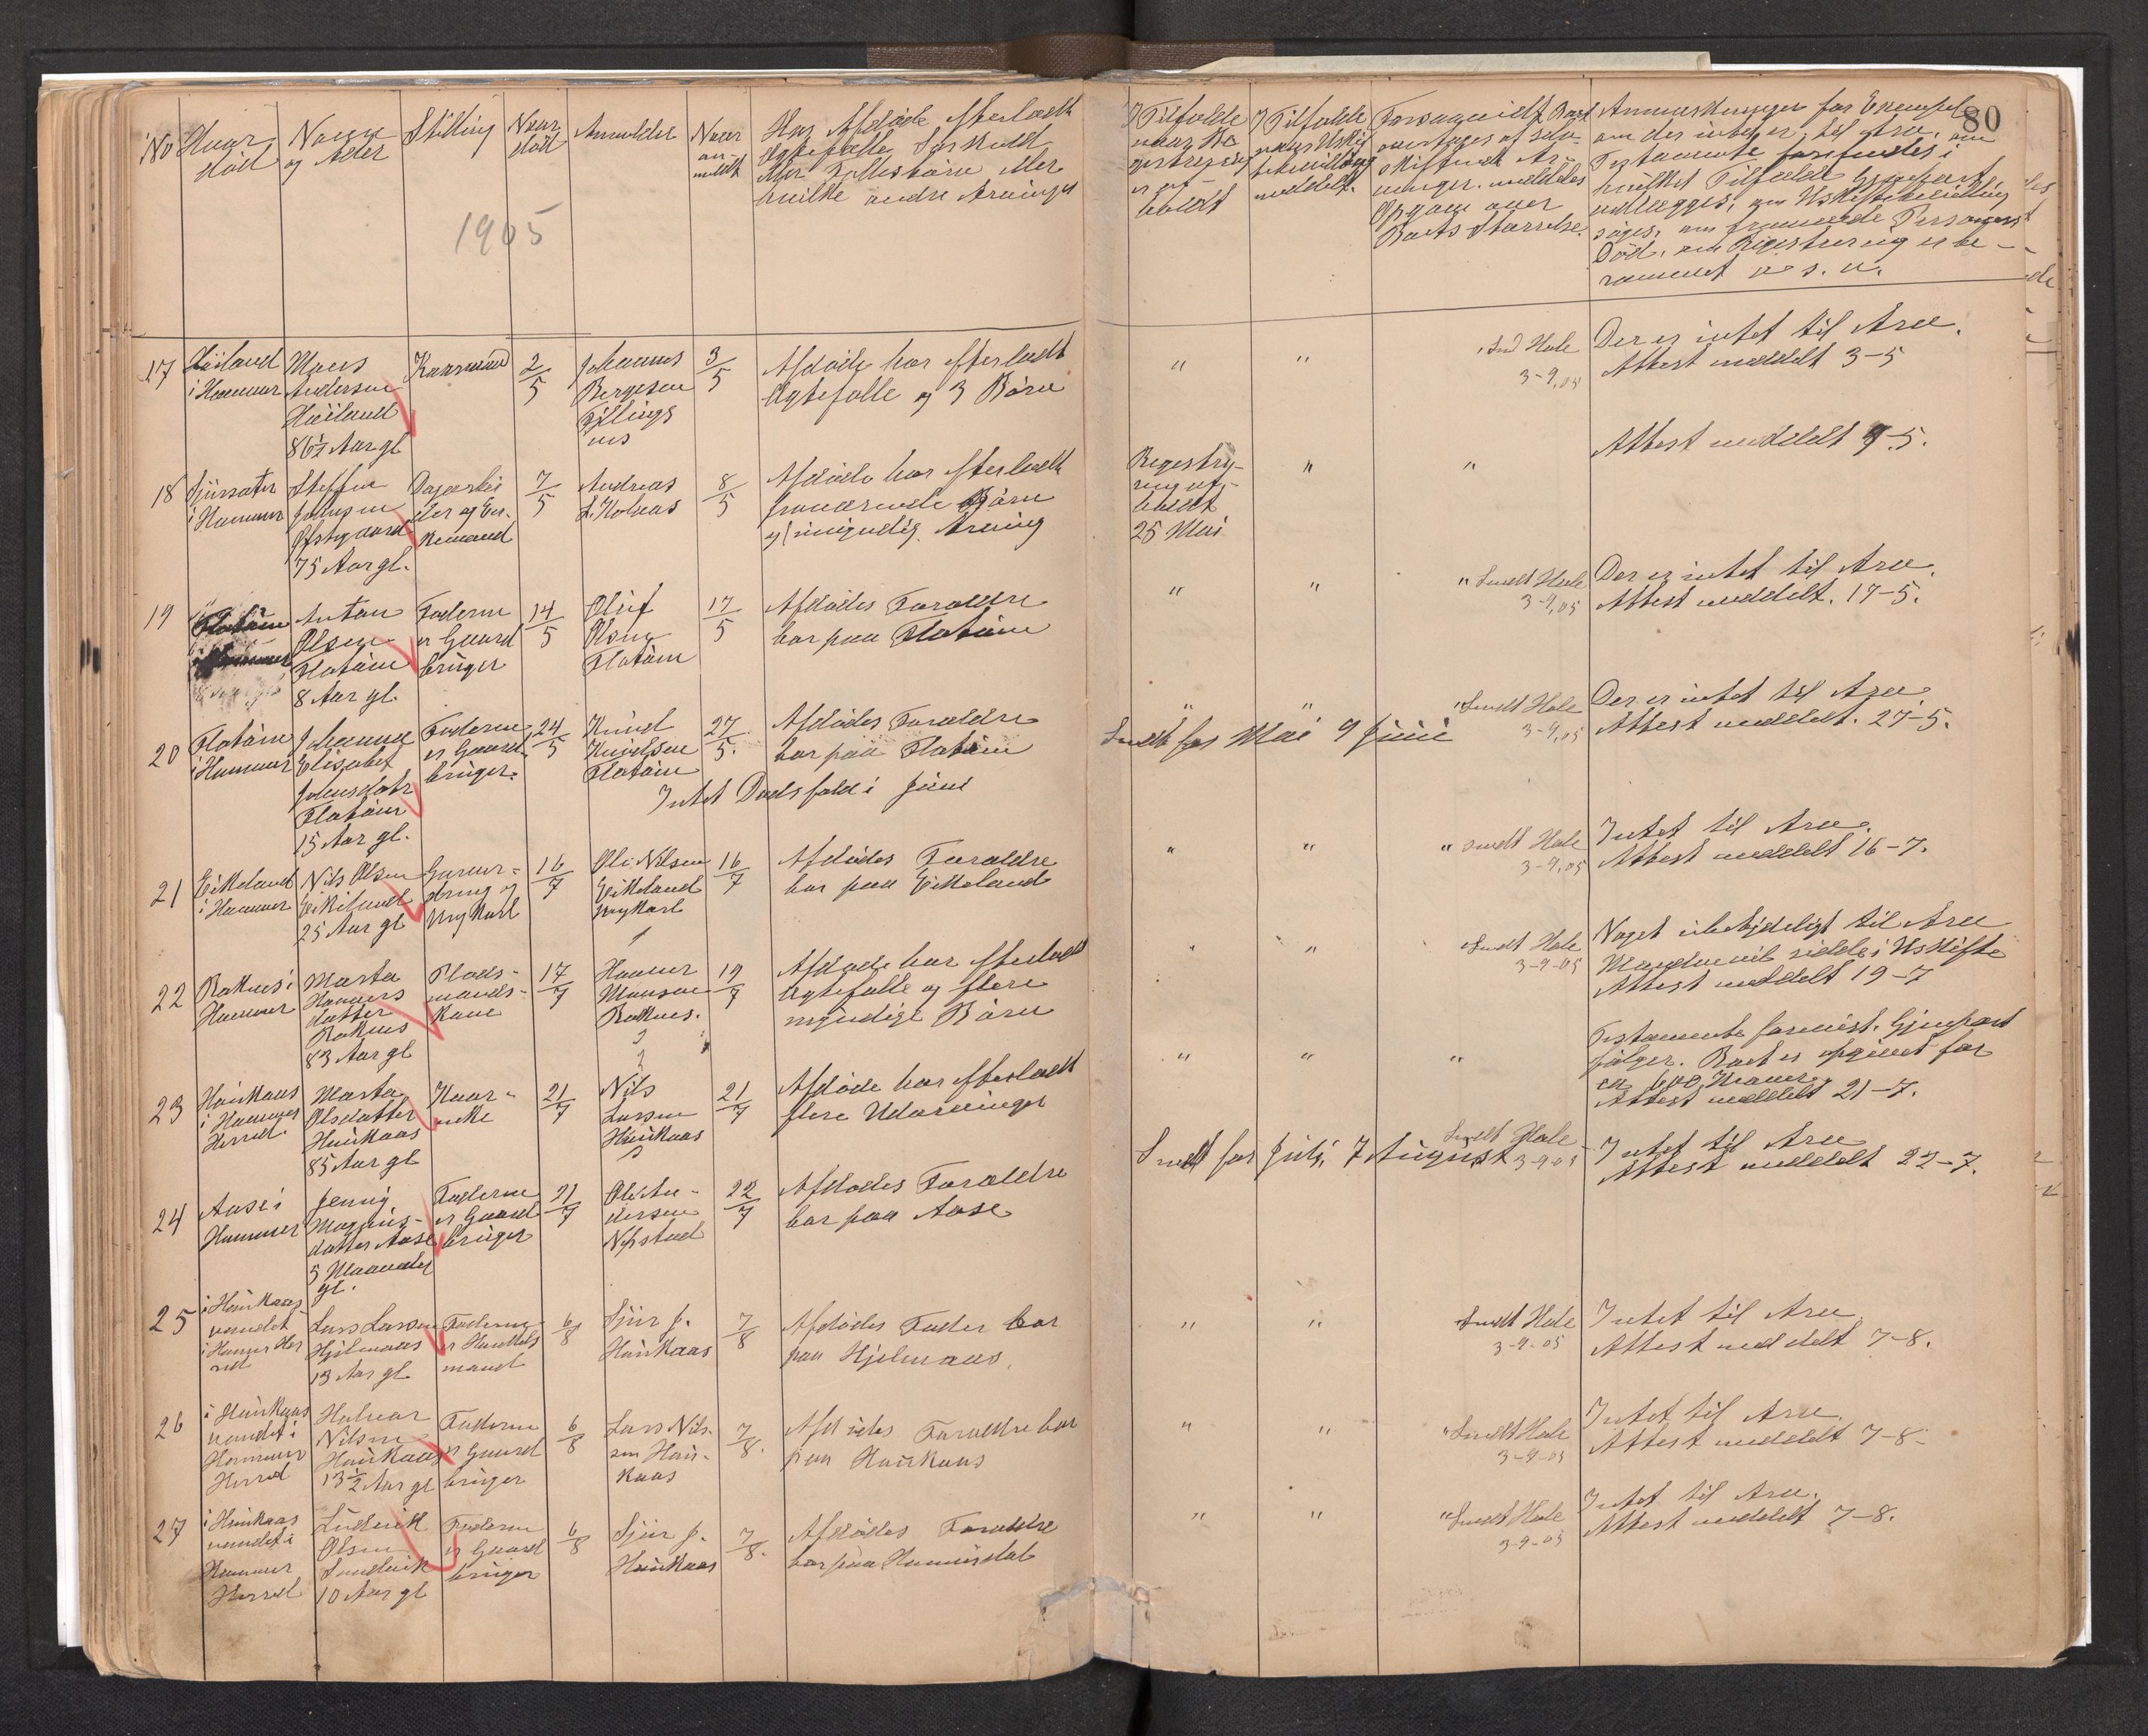 80
No
Hvor
død
Navn
og Alder
Stilling
Naar
død
Anmelder
Naar
an-
meldt
Har Afdøde efterladt
Ægtefælle, Særkuld
eller Fællesbørn eller
hvilke andre Arvinger
1905
I Tilfælde
naar Re
gistrering
er af-
holdt
I Tilfælde
naar Uskif
tebevilling
meddelt.
Forsaavidt Boet
overtages af selv-
skiftende Ar-
vinger meddeles
Opgave over
Boets Størrelse.
Anmærkninger for Exempel
om der intet er til Arv, om
Testamente forefindes i
hvilket Tilfælde Gjenpart
vedlægges, om Uskiftebevilling
søges, om fremmede Personers
Død, om Registrering er be-
rammet o. s. v.
17
Høiland
i Hammer
Mons
Andersen
Høiland
86½ Aar gl
Kaarmand
2/5
Johannes
Bergesen
Fyllings
nes
3/5
Afdøde har efterladt
Ægtefælle og 3 Børn
"
"
Sud Hole
3-9,05
Der er intet til Arv.
Attest meddelt 3-5
18
i Hammer
Steffen
Johnsen
75 Aar gl.
Dagarbei
der og En-
kemand
7/5
Andreas
8/5
Afdøde har efterladt
fraværende Børn
umyndig Arving
Regestry-
ring af-
holdt
25 Mai
"
"
Attest meddelt 9-5.
19
Flatøen
Hammer
Anton
Olsen
Flatøen
8 Aar gl.
Faderen
er Gaard
bruger
14/5
Oluf
Olsen
Flatøen
17/5
Afdødes Forældre
bor paa Flatøen
"
"
" Sendt Hole
3-9,05
Der er intet til Arv.
Attest meddelt. 17-5.
20
Flatøen
i Hammer
Johanna
Elisabet
Johnsdatr
Flatøen
15 Aar gl.
Faderen
er Gaard
bruger.
24/5
Knud
Knudsen
Flatøen
27/5.
Afdødes Forældre
bor paa Flatøen
Intet Dødsfald i Juni
"
"
" Sendt Hole
3-9,05
Sendt for Mai 9 Juni
Der er intet til Arv.
Attest meddelt. 27-5.
21
Eikeland
i Hammer
Nils Olsen
Eikeland
25 Aar gl
Garver-
dreng og
Ungkarl
16/7
Ole Nilsen
Eikeland
Ungkarl
16/7
Afdødes Forældre
bor paa Eikeland
"
"
" Sendt Hole
3-9,05
Intet til Arv.
Attest meddelt 16-7.
22
Raknes i
Hammer
Marta
Hannes
datter
Raknes
83 Aar gl
Plads-
mands-
Kone
17/7
Hannes
Monsen
Raknes.
19/7
Afdøde har efterladt
Ægtefælle og flere
myndige Børn
"
"
Sendt Hole
3-9-05
Noget ubetydeligt til Arv
Manden vil sidde i Uskifte
Attest meddelt 19-7
23
Haukaas
i Hammer
Herred.
Marta
Olsdatter
Haukaas
85 Aar gl
Kaar-
enke
21/7
Nils
Larsen
Haukaas
21/7
Afdøde har efterladt
flere Udarvinger
"
"
"
Testamente forevist. Gjenpart
følger. Boet er opgivet for
ca 600 Kroner.
Attest meddelt 21-7.
24
Aase i
Hammer
Jenny
Magnus-
datter Aase
5 Maaneder
gl.
Faderen
er Gaard
bruger
21/7
Ole An-
dersen
Nystad
22/7
Afdødes Forældre
bor paa Aase
Sendt for Juli, 7 August
Sendt Hole
3-9-05
Intet til Arv
Attest meddelt 22-7.
25
i Haukaas
vandet
i Hammer Her
red
Lars Larsen
Hjelmaas
13 Aar gl
Faderen
er Handels
mand
6/8
Sjur J.
Haukaas
7/8
Afdødes Fader bor
paa Hjelmaas.
"
"
Sendt Hole
3-9-05
Intet til Arv
Attest meddelt 7-8.
26
i Haukaas
vandet i
Hammer
Herred
Halvar
Nilsen
Haukaas
13½ Aar gl
Faderen
er Gaard
bruger
6/8
Lars Nils-
sen Hau-
kaas
7/8.
Afdødes Forældre bor
paa Haukaas
"
"
" Sendt Hole
3-9-05
Intet til Arv.
Attest meddelt 7-8-
27
i Haukaas
vandet i
Hammer
Herred
Ludvik
Olsen
10 Aar gl
Faderen
er Gaard
bruger
6/8
Sjur J.
Haukaas
7/8.
Afdødes Forældre
bor paa
"
"
" Sendt Hole
3-9-05
Intet til Arv.
Attest meddelt 7-8.